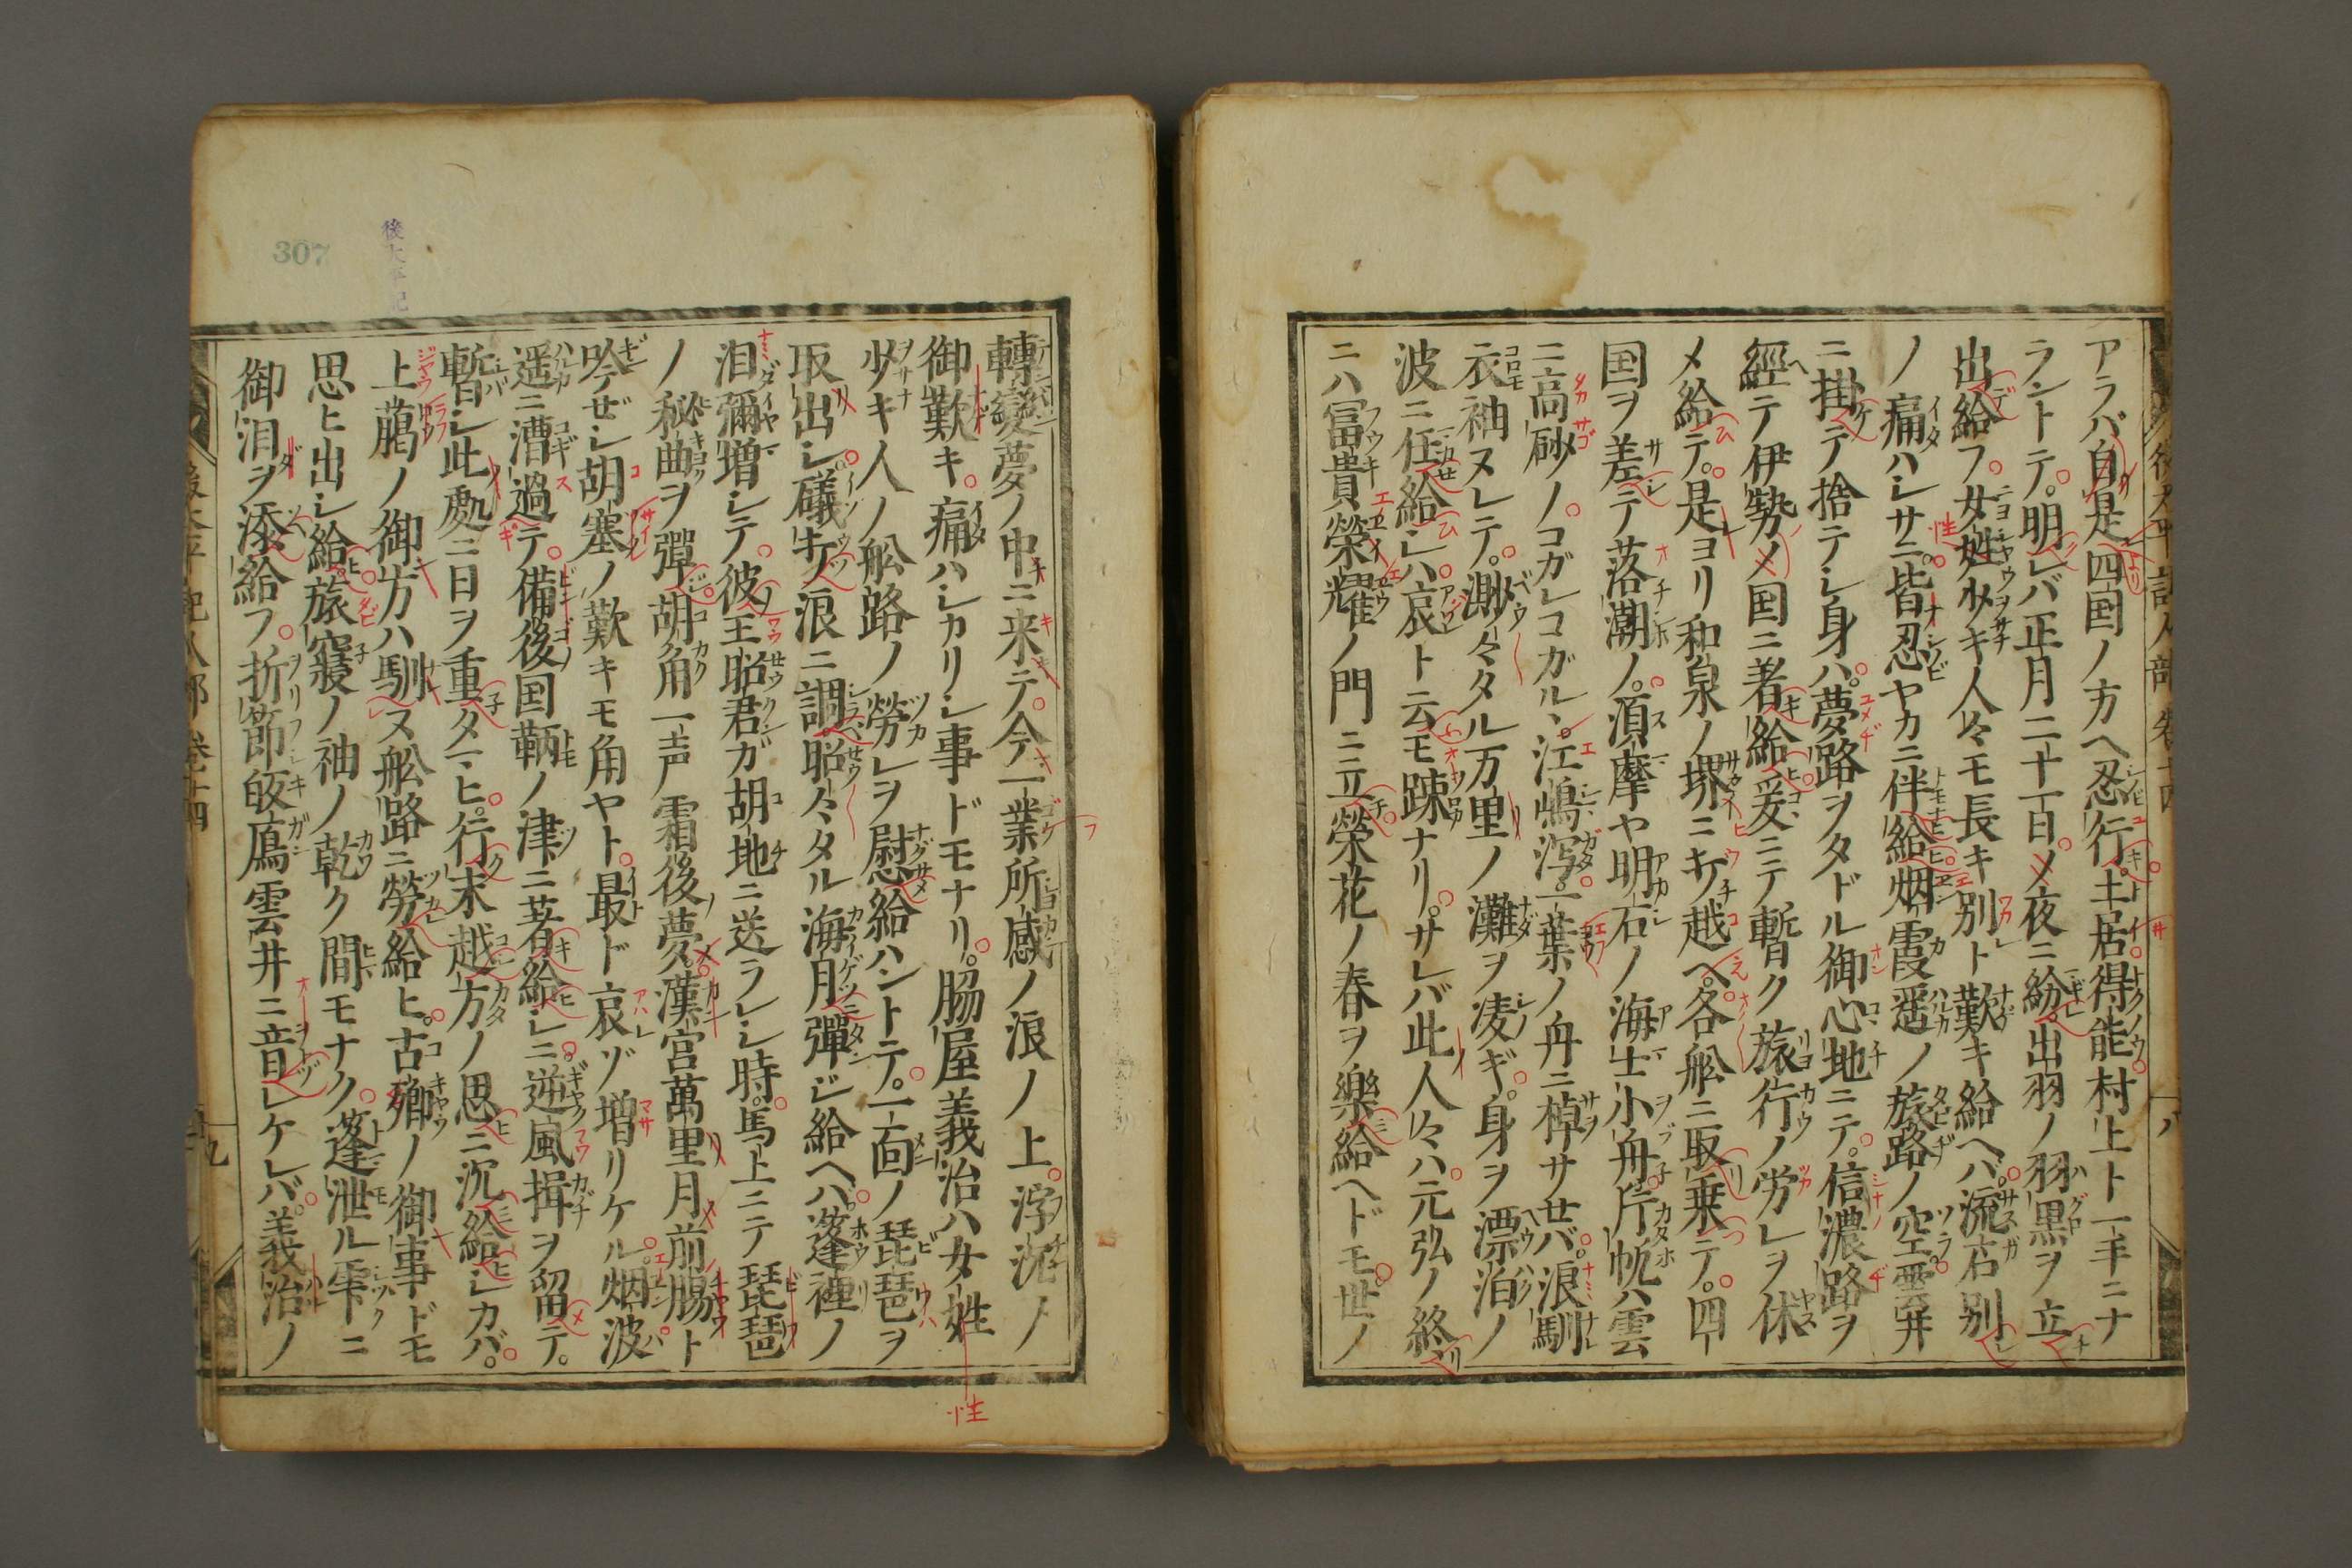 アラバ自是四国ノ方ヘ忍行土居得能村上ト一手ニナ
ラントテ。明レバ正月二十一日。ノ夜ニ紛出羽ノ羽黒ヲ立
出給フ。女姓少キ人々モ長キ別ト歎キ給ヘバ。流石別
ノ痛ハシサニ。皆忍ヤカニ伴給烟霞遥ノ旅路ノ空。雲井
ニ掛テ捨テシ身ハ。夢路ヲタドル御心地ニテ。信濃路ヲ
經テ伊勢ノ国ニ著給爰ニテ暫ク旅行ノ労レヲ休
メ給テ。是ヨリ和泉ノ堺ニ打越ヘ。各舩ニ取乗テ。四
国ヲ差テ落潮ノ。須摩ヤ明石ノ海士小舟片帆ハ雲
ニ高砂ノ。コガレコガルヽ。江嶋泻。一葉ノ舟ニ棹サセバ。浪馴
衣袖ヌレテ。渺々タル万里ノ灘ヲ凌ギ。身ヲ漂泊ノ
波ニ任給シハ。哀ト云モ踈ナリ。サレバ此人々ハ。元弘ノ終
ニハ冨貴榮耀ノ門ニ立榮花ノ春ヲ樂給ヘドモ。世ノ
後太平記人部 巻十四
八
轉變夢ノ中ニ来テ。今一業所感ノ浪ノ上。浮沈ノ
御歎キ。痛ハシカリシ事ドモナリ。脇屋義治ハ女姓
少キ人ノ舩路ノ勞レヲ慰給ハントテ。一面ノ琵琶ヲ
取出シ。礒打浪ニ調。昭々タル海月彈ジ給ヘハ。蓬裡ノ
泪彌増シテ。彼王昭君ガ胡地ニ送ラレシ時。馬上ニテ琵琶
ノ秘曲ヲ彈。胡角一声霜後夢。漢宮萬里月前腸ト
吟ぜシ胡塞ノ歎キモ角ヤト。最ド哀ゾ増リケル。烟波
遥ニ漕過テ。備後国鞆ノ津ニ著給シニ。逆風揖ヲ留テ。
暫シ此處ニ日ヲ重タマヒ。行末越方ノ思ニ沉給シカバ。
上﨟ノ御方ハ馴ヌ舩路ニ勞給ヒ。古郷ノ御事ドモ
思ヒ出シ給。旅寝ノ袖ノ乾ク間モナク。篷泄ル雫ニ
御泪ヲ添給フ。折節皈鴈雲井ニ音レケレバ。義治ノ
後太平記人部 巻十四
九
307
後太平記
性
性